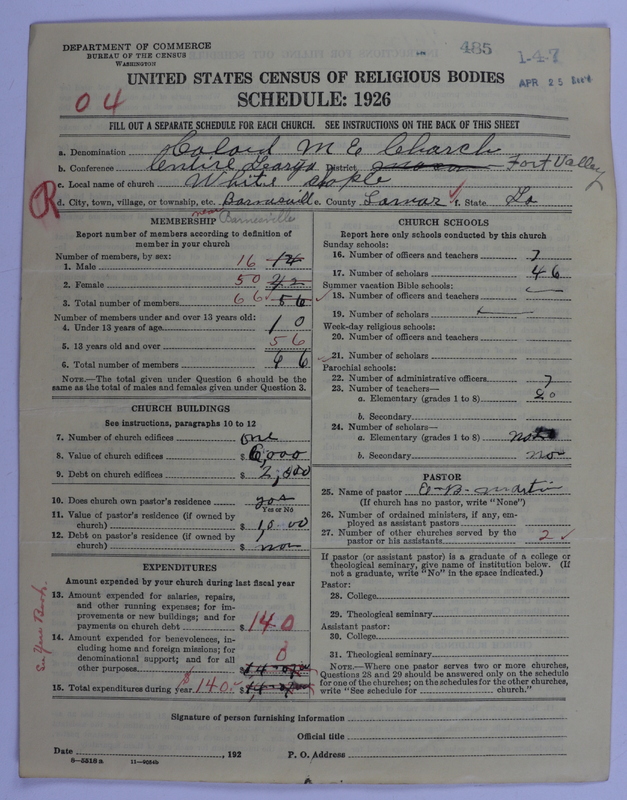 DEPARTMENT OF COMMERCE
BUREAU OF THE CENSUS
WASHINGTON
485
1-4-7
APR 25
UNITED STATES CENSUS OF RELIGIOUS BODIES
04
SCHEDULE: 1926
FILL OUT A SEPARATE SCHEDULE FOR EACH CHURCH. SEE INSTRUCTIONS ON THE BACK OF THIS SHEET
a. Denomination Colord M E Church
b. Conference District Fort Valley
c. Local name of church White
R
d. City, town, village, or township, etc. e. County Lamar f. State Ga
near Barnesville
MEMBERSHIP
Report number of members according to definition of
member in your church
Number of members, by sex:
1. Male 16 14
2. Female 50 42
3. Total number of members 66 56
Number of members under and over 13 years old:
4. Under 13 years of age 10
5. 13 years old and over 56
6. Total number of members 66
NOTE.—The total given under Question 6 should be the
same as the total of males and females given under Question 3.
CHURCH BUILDINGS
See instructions, paragraphs 10 to 12
7. Number of church edifices one
8. Value of church edifices $ 6,000
9. Debt on church edifices $ 2,000
10. Does church own pastor's residence yes
Yes or No
11. Value of pastor's residence (if owned by
church) $
12. Debt on pastor's residence (if owned by
church) $
EXPENDITURES
Amount expended by your church during last fiscal year
13. Amount expended for salaries, repairs,
and other running expenses; for im-
provements or new buildings; and for
payments on church debt $ 140
14. Amount expended for benevolences, in-
cluding home and foreign missions; for
denominational support; and for all
other purposes 0
15. Total expenditures during year $ 140
CHURCH SCHOOLS
Report here only schools conducted by this church
Sunday schools:
16. Number of officers and teachers 7
17. Number of scholars 46
Summer vacation Bible schools:
18. Number of officers and teachers
19. Number of scholars
Week-day religious schools:
20. Number of officers and teachers
21. Number of scholars
Parochial schools:
22. Number of administrative officers 7
23. Number of teachers—
a. Elementary (grades 1 to 8)
b. Secondary
24. Number of scholars—
a. Elementary (grades 1 to 8)
b. Secondary no
PASTOR
25. Name of pastor B. Martin
(If church has no pastor, write "None")
26. Number of ordained ministers, if any, em-
ployed as assistant pastors
27. Number of other churches served by the
pastor or his assistants 2
If pastor (or assistant pastor) is a graduate of a college or
theological seminary, give name of institution below. (If
not a graduate, write "No" in the space indicated.)
Pastor:
28. College
29. Theological seminary
Assistant pastor:
30. College
31. Theological seminary
NOTE.—Where one pastor serves two or more churches,
Questions 28 and 29 should be answered only on the schedule
for one of the churches; on the schedules for the other churches,
write "See schedule for church."
Signature of person furnishing information
Official title
Date , 192 P. O. Address
8—5318a 11—9054b